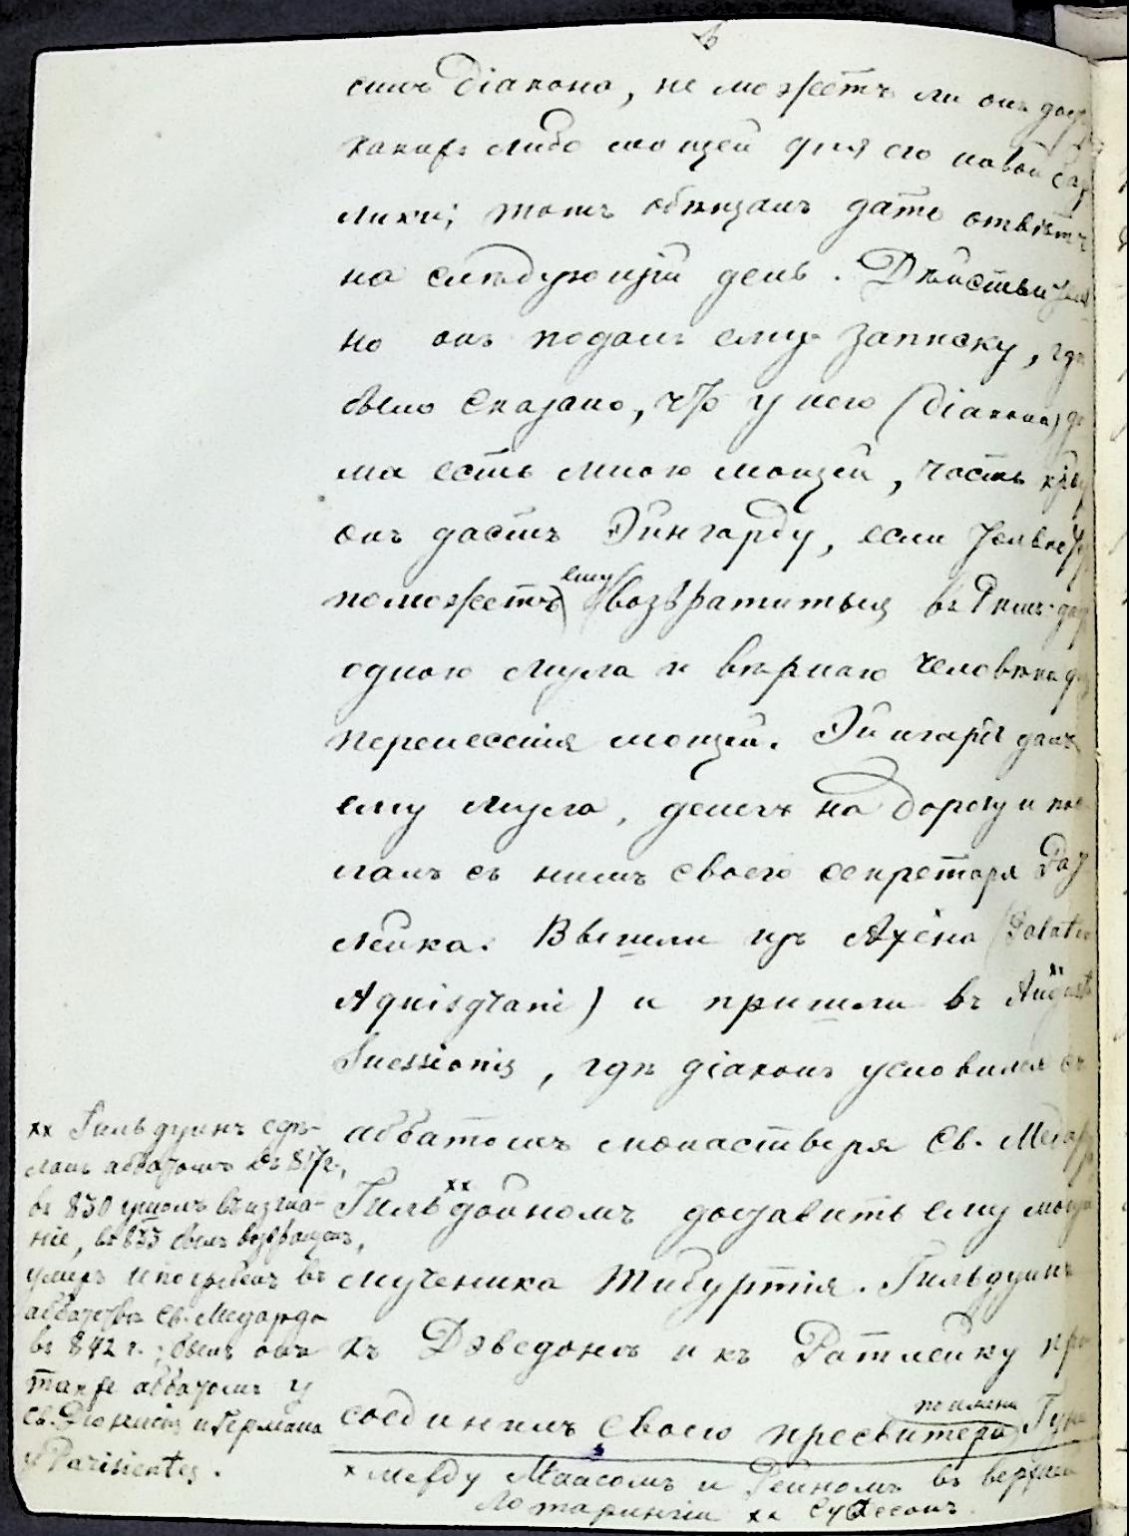 силъ діакона, не можетъ ли онъ
какихъ либо мощей для его новой
лики; тотъ обѣщалъ дать отвѣтъ
на слѣдующій день. Дѣйствитель
но онъ подалъ ему записку, гдѣ
было сказано, что у него (діакона) до
ма есть много мощей, часть
онъ дастъ Эйнгарду, если
поможетъ ему возвратиться въ Римъ;
одного мула и вѣрнаго человѣка
перенесенія мощей. Эйнгардъ далъ
ему мула, денегъ на дорогу и пос
лалъ съ нимъ своего секретаря Рат
лейка. Вышли изъ Ахена (Palatio
Aquisgrani) и пришли въ August xx
Suessionis, гдѣ діаконъ условился съ
аббатомъ монастыря Св. Медард
Гильдоиномъ xx доставить ему мощи
мученика Тибуртія. Гильдуинъ
къ Дэведонъ и къ Ратлейку при
соединилъ своего пресвитера по имени Гун
x между Маасомъ и Рейномъ въ верхней
Лотарингіи xx Суассонъ.
xx Гильдуинъ сдѣ-
ланъ аббатомъ въ 817 г.,
въ 830 ушолъ въ изгна-
ніе, въ 833 былъ возвращенъ,
умеръ и погребенъ въ
аббатствѣ Св. Медарда
въ 842 г.; былъ онъ
также аббатомъ у
Св. Діонисія и Германа
Parisientes.